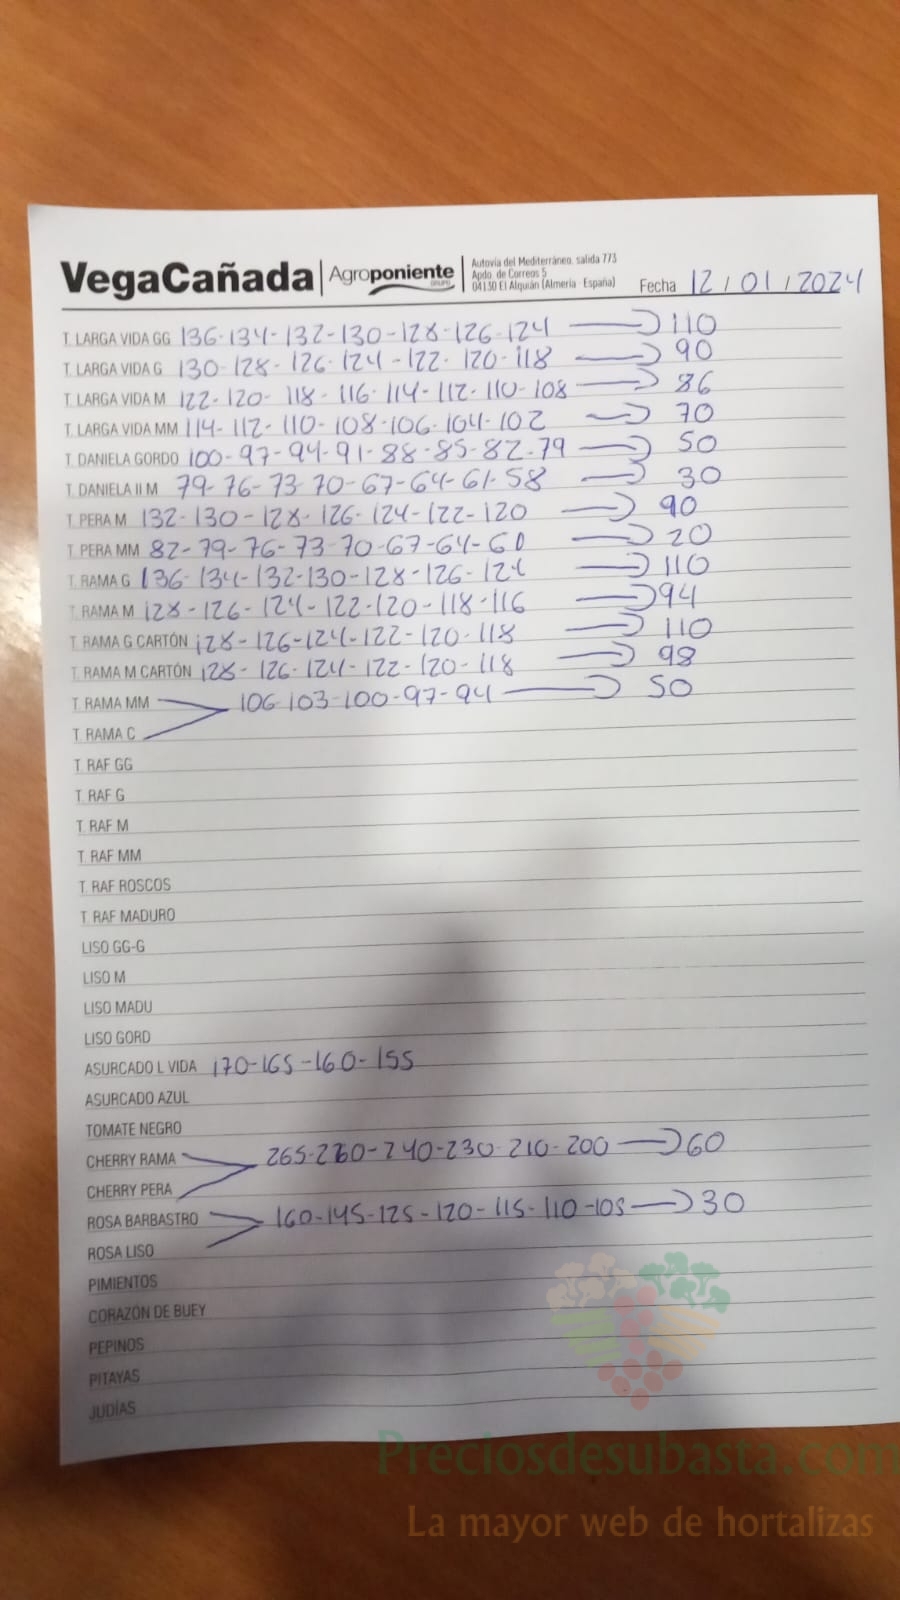 VegaCañada | Agroponiente GRUPO
Autovía del Mediterráneo. salida 773
Apdo. de Correos 5
04130 El Alquián (Almería · España)
Fecha 12 / 01 / 2024
T. LARGA VIDA GG 136-134-132-130-128-126-124 → 110
T. LARGA VIDA G 130-128-126-124-122-120-118 → 90
T. LARGA VIDA M 122-120-118-116-114-112-110-108 → 86
T. LARGA VIDA MM 114-112-110-108-106-104-102 → 70
T. DANIELA GORDO 100-97-94-91-88-85-82-79 → 50
T. DANIELA II M 79-76-73-70-67-64-61-58 → 30
T. PERA M 132-130-128-126-124-122-120 → 90
T. PERA MM 82-79-76-73-70-67-64-60 → 20
T. RAMA G 136-134-132-130-128-126-124 → 110
T. RAMA M 128-126-124-122-120-118-116 → 94
T. RAMA G CARTÓN 128-126-124-122-120-118 → 110
T. RAMA M CARTÓN 128-126-124-122-120-118 → 98
T. RAMA MM 106-103-100-97-94 → 50
T. RAMA C
T. RAF GG
T. RAF G
T. RAF M
T. RAF MM
T. RAF ROSCOS
T. RAF MADURO
LISO GG-G
LISO M
LISO MADU
LISO GORD
ASURCADO L VIDA 170-165-160-155
ASURCADO AZUL
TOMATE NEGRO
CHERRY RAMA 265-260-240-230-210-200 → 60
CHERRY PERA
ROSA BARBASTRO 160-145-125-120-115-110-105 → 30
ROSA LISO
PIMIENTOS
CORAZÓN DE BUEY
PEPINOS
PITAYAS
JUDÍAS
Preciosdesubasta.com
La mayor web de hortalizas